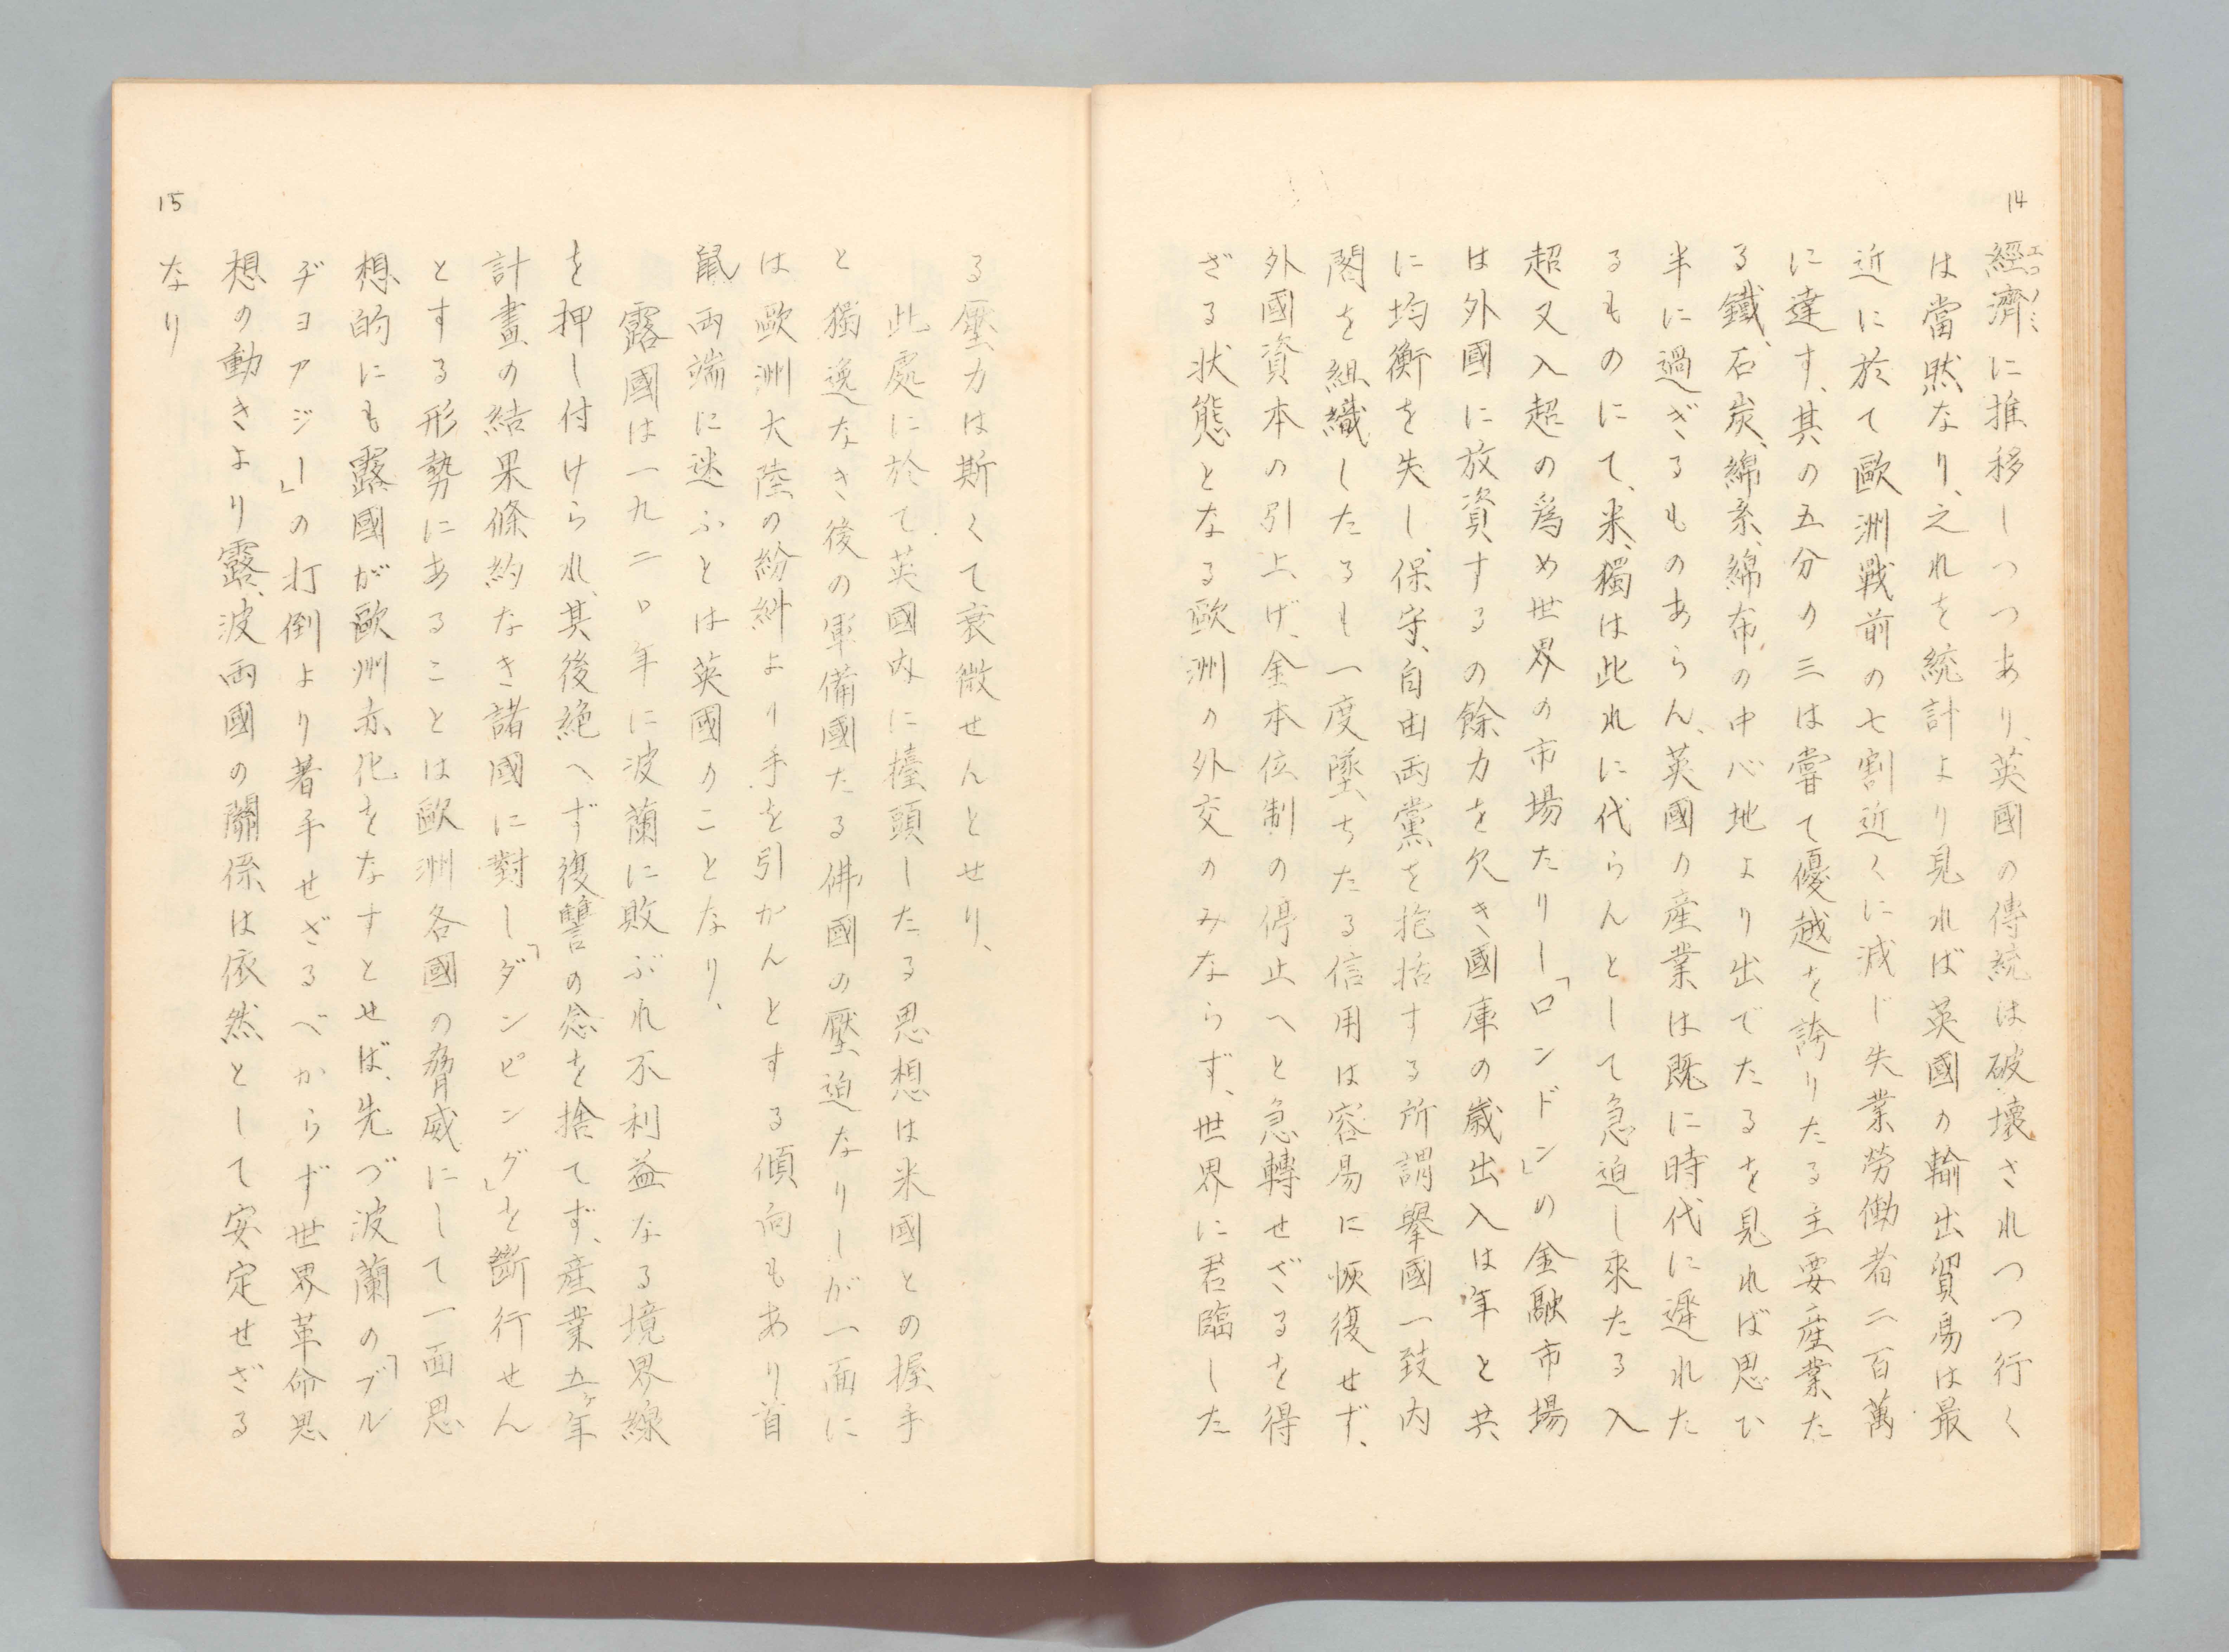 14
經濟に推移しつつあり、英國の傳統は破壊されつつ行く
エコノミー
は當然なり、之れを統計より見れば英國の輸出貿易は最
近に於て歐洲戰前の七割近くに減じ失業勞働者二百萬
に達す、其の五分の三は嘗て優越を誇りたる主要産業た
る鐵、石炭、綿糸、綿布の中心地より出でたるを見れば思ひ
半に過ぎるものあらん、英國の産業は既に時代に遲れた
るものにて、米、獨は此れに代らんとして急迫し來たる入
超又入超の爲め世界の市場たりし「ロンドン」の金融市場
は外國に放資するの餘力を欠き國庫の歳出入は年と共
に均衡を失し、保守、自由両黨を抱括する所謂擧國一致内
閣を組織したるも一度墜ちたる信用は容易に恢復せず、
外國資本の引上げ、金本位制の停止へと急轉せざるを得
ざる状態となる歐洲の外交のみならず、世界に君臨した
15
る壓力は斯くて衰微せんとせり、
此處に於て英國内に擡頭したる思想は米國との握手
と獨逸なき後の軍備國たる佛國の壓迫なりしが一面に
は歐洲大陸の紛糾より手を引かんとする傾向もあり首
鼠両端に迷ふとは英國のことなり、
露國は一九二〇年に波蘭に敗ぶれ不利益なる境界線
を押し付けられ、其後絶へず復讐の念を捨てず、産業五ヶ年
計畫の結果條約なき諸國に對し「ダンピング」を斷行せん
とする形勢にあることは歐洲各國の脅威にして一面思
想的にも露國が歐州赤化をなすとせば、先づ波蘭の「ブル
ヂョアジー」の打倒より著手せざるべからず世界革命思
想の動きより露、波両國の關係は依然として安定せざる
なり